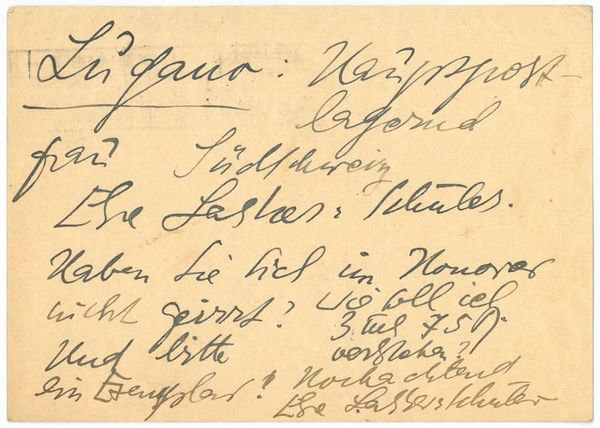 Lugano: Hauptpost-
lagernd
Frau Südschweiz
Else Lasker-Schüler.
Haben Sie sich im Honorar
nicht geirrt? Wie soll ich
3 mal 75 Pf.
Und bitte verstehen?
ein Exemplar! Hochachtend
Else Lasker-Schüler